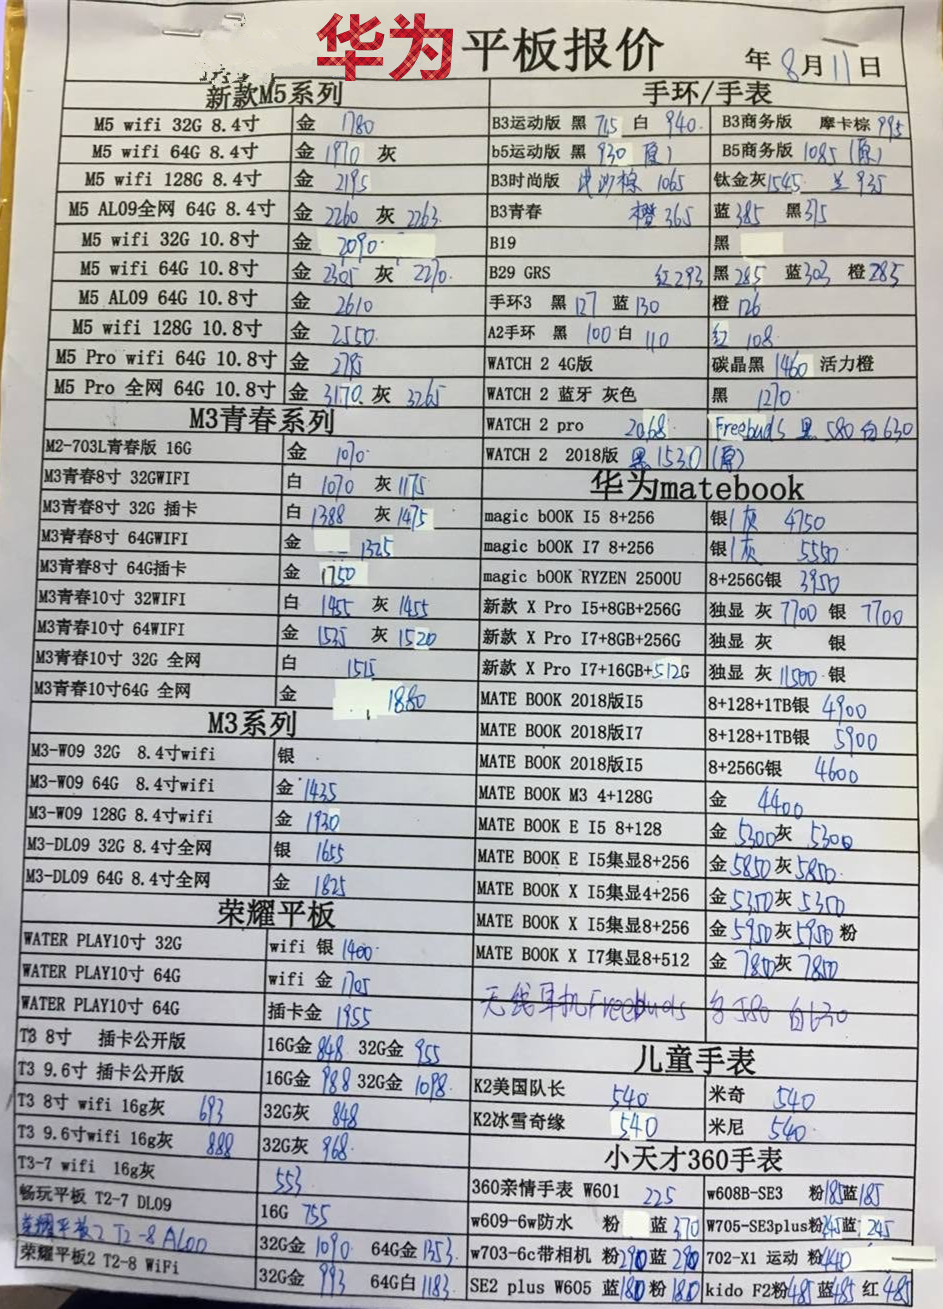 华为平板报价
年8月11日
新款M5系列
M5 wifi 32G 8.4寸 金 1780
M5 wifi 64G 8.4寸 金 1970 灰
M5 wifi 128G 8.4寸 金 2195
M5 AL09全网 64G 8.4寸 金 2260 灰 2263
M5 wifi 32G 10.8寸 金 2090
M5 wifi 64G 10.8寸 金 2305 灰 2270
M5 AL09 64G 10.8寸 金 2610
M5 wifi 128G 10.8寸 金 2550
M5 Pro wifi 64G 10.8寸 金 2785
M5 Pro 全网 64G 10.8寸 金 3170 灰 3265
M3青春系列
M2-703L青春版 16G 金 1070
M3青春8寸 32GWIFI 白 1070 灰 1175
M3青春8寸 32G 插卡 白 1388 灰 1475
M3青春8寸 64GWIFI 金 1325
M3青春8寸 64G插卡 金 1750
M3青春10寸 32WIFI 白 1455 灰 1455
M3青春10寸 64WIFI 金 1535 灰 1520
M3青春10寸 32G 全网 白 1515
M3青春10寸64G 全网 金 1880
M3系列
M3-W09 32G 8.4寸wifi 银
M3-W09 64G 8.4寸wifi 金 1435
M3-W09 128G 8.4寸wifi 金 1930
M3-DL09 32G 8.4寸全网 银 1655
M3-DL09 64G 8.4寸全网 金 1825
荣耀平板
WATER PLAY10寸 32G wifi 银 1400
WATER PLAY10寸 64G wifi 金 1705
WATER PLAY10寸 64G 插卡金 1955
T3 8寸 插卡公开版 16G金 848 32G金 955
T3 9.6寸 插卡公开版 16G金 988 32G金 1098
T3 8寸 wifi 16g灰 693 32G灰 848
T3 9.6寸wifi 16g灰 888 32G灰 968
T3-7 wifi 16g灰 553
畅玩平板 T2-7 DL09 16G 755
荣耀平板2 T2-8 AL00 32G金 1090 64G金 1353
荣耀平板2 T2-8 WiFi 32G金 993 64G白 1183
手环/手表
B3运动版 黑 715 白 940 B3商务版 摩卡棕 995
b5运动版 黑 930 (原) B5商务版 1085 (原)
B3时尚版 棕 1065 钛金灰 1545 兰 935
B3青春 橙 365 蓝 385 黑 375
B19 黑
B29 GRS 红 293 黑 285 蓝 303 橙 285
手环3 黑 127 蓝 130 橙 126
A2手环 黑 100 白 110 红 108
WATCH 2 4G版 碳晶黑 1460 活力橙
WATCH 2 蓝牙 灰色 黑 1270
WATCH 2 pro 2068 Freebuds 黑 580 白 630
WATCH 2 2018版 黑 1530 (原)
华为matebook
magic bOOK I5 8+256 银/灰 4750
magic bOOK I7 8+256 银/灰 5550
magic bOOK RYZEN 2500U 8+256G银 3950
新款 X Pro I5+8GB+256G 独显 灰 7700 银 7700
新款 X Pro I7+8GB+256G 独显 灰 银
新款 X Pro I7+16GB+512G 独显 灰 11500 银
MATE BOOK 2018版I5 8+128+1TB银 4900
MATE BOOK 2018版I7 8+128+1TB银 5900
MATE BOOK 2018版I5 8+256G银 4600
MATE BOOK M3 4+128G 金 4400
MATE BOOK E I5 8+128 金 5300 灰 5300
MATE BOOK E I5集显8+256 金 5850 灰 5850
MATE BOOK X I5集显4+256 金 5350 灰 5350
MATE BOOK X I5集显8+256 金 5950 灰 5950 粉
MATE BOOK X I7集显8+512 金 7850 灰 7850
无线耳机Freebuds 580 白630
儿童手表
K2美国队长 540 米奇 540
K2冰雪奇缘 540 米尼 540
小天才360手表
360亲情手表 W601 225 w608B-SE3 粉185 蓝185
w609-6w防水 粉 蓝 370 W705-SE3plus粉245 蓝 245
w703-6c带相机 粉290 蓝 290 702-X1 运动 粉440
SE2 plus W605 蓝180 粉180 kido F2粉485 蓝485 红 485